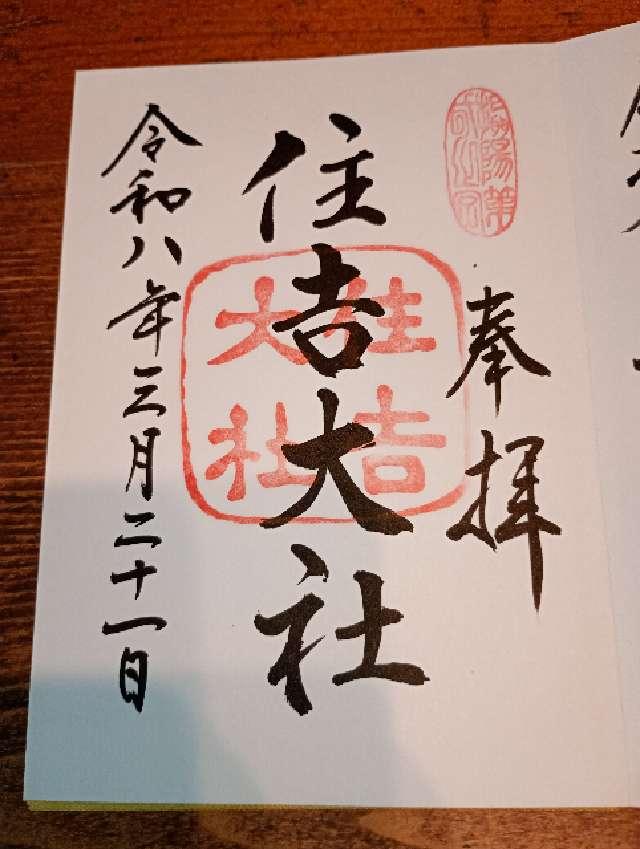 奉拝
住吉大社
住吉
大社
令和八年三月二十一日